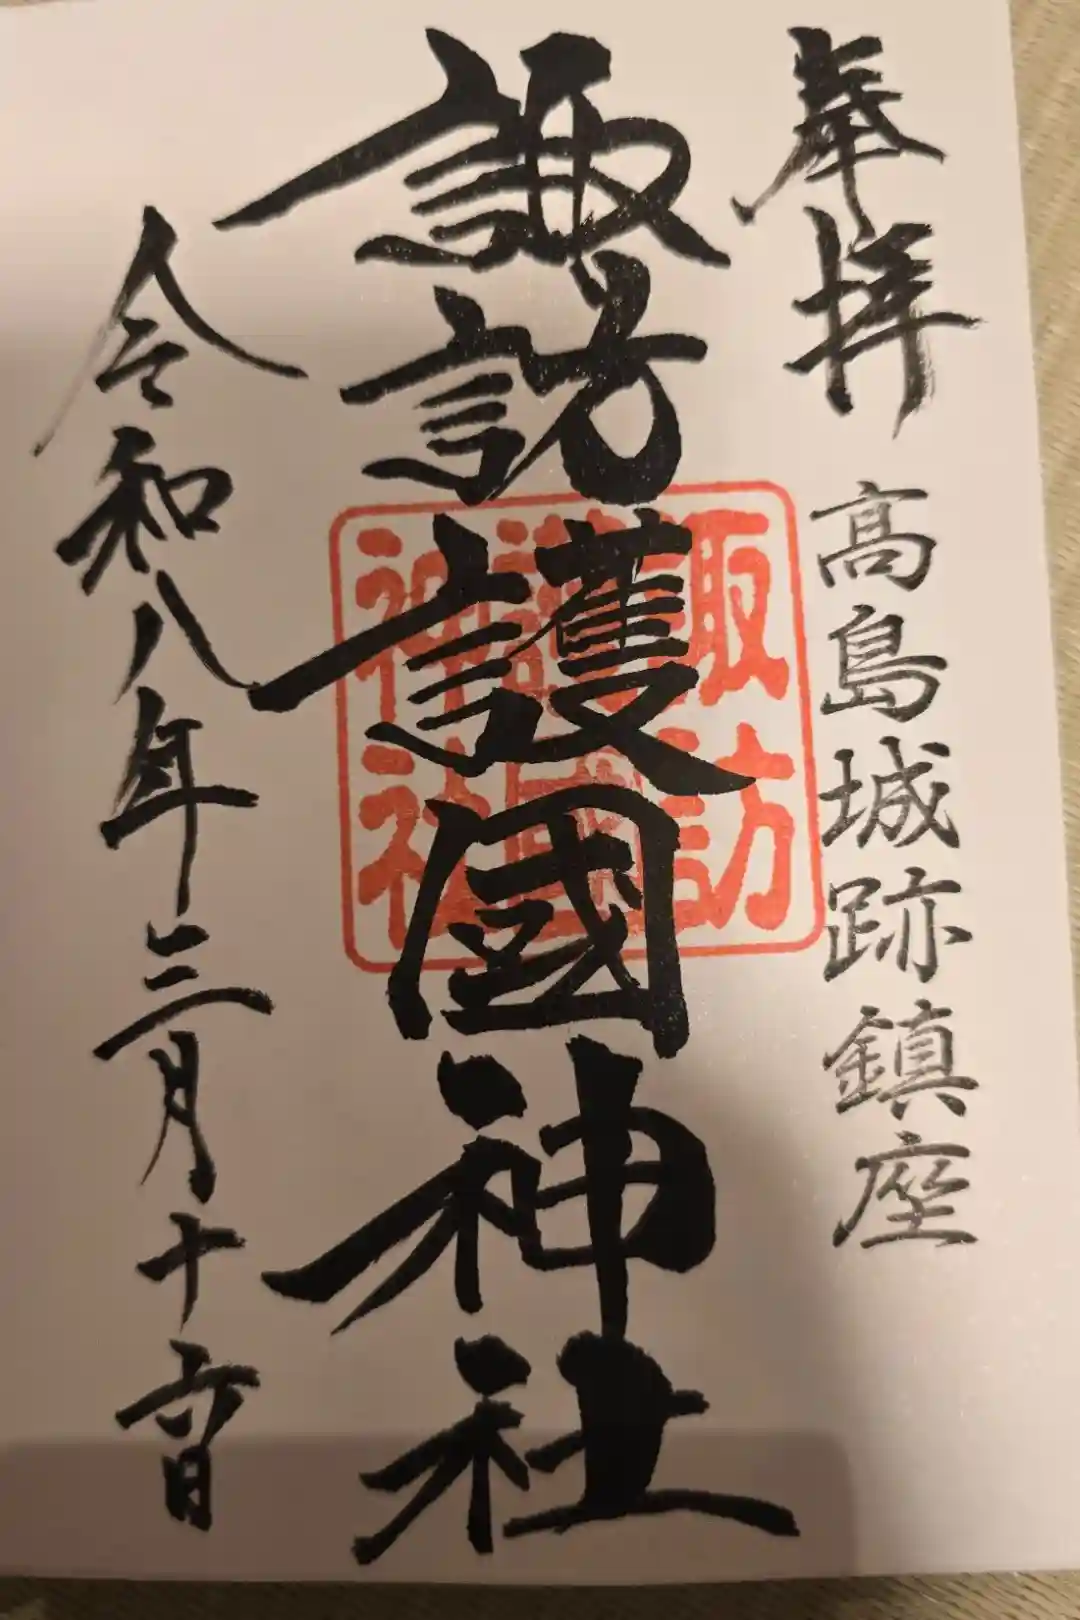 奉拝 高島城跡鎮座
諏訪護國神社
令和八年三月十六日
諏訪
護國
神社